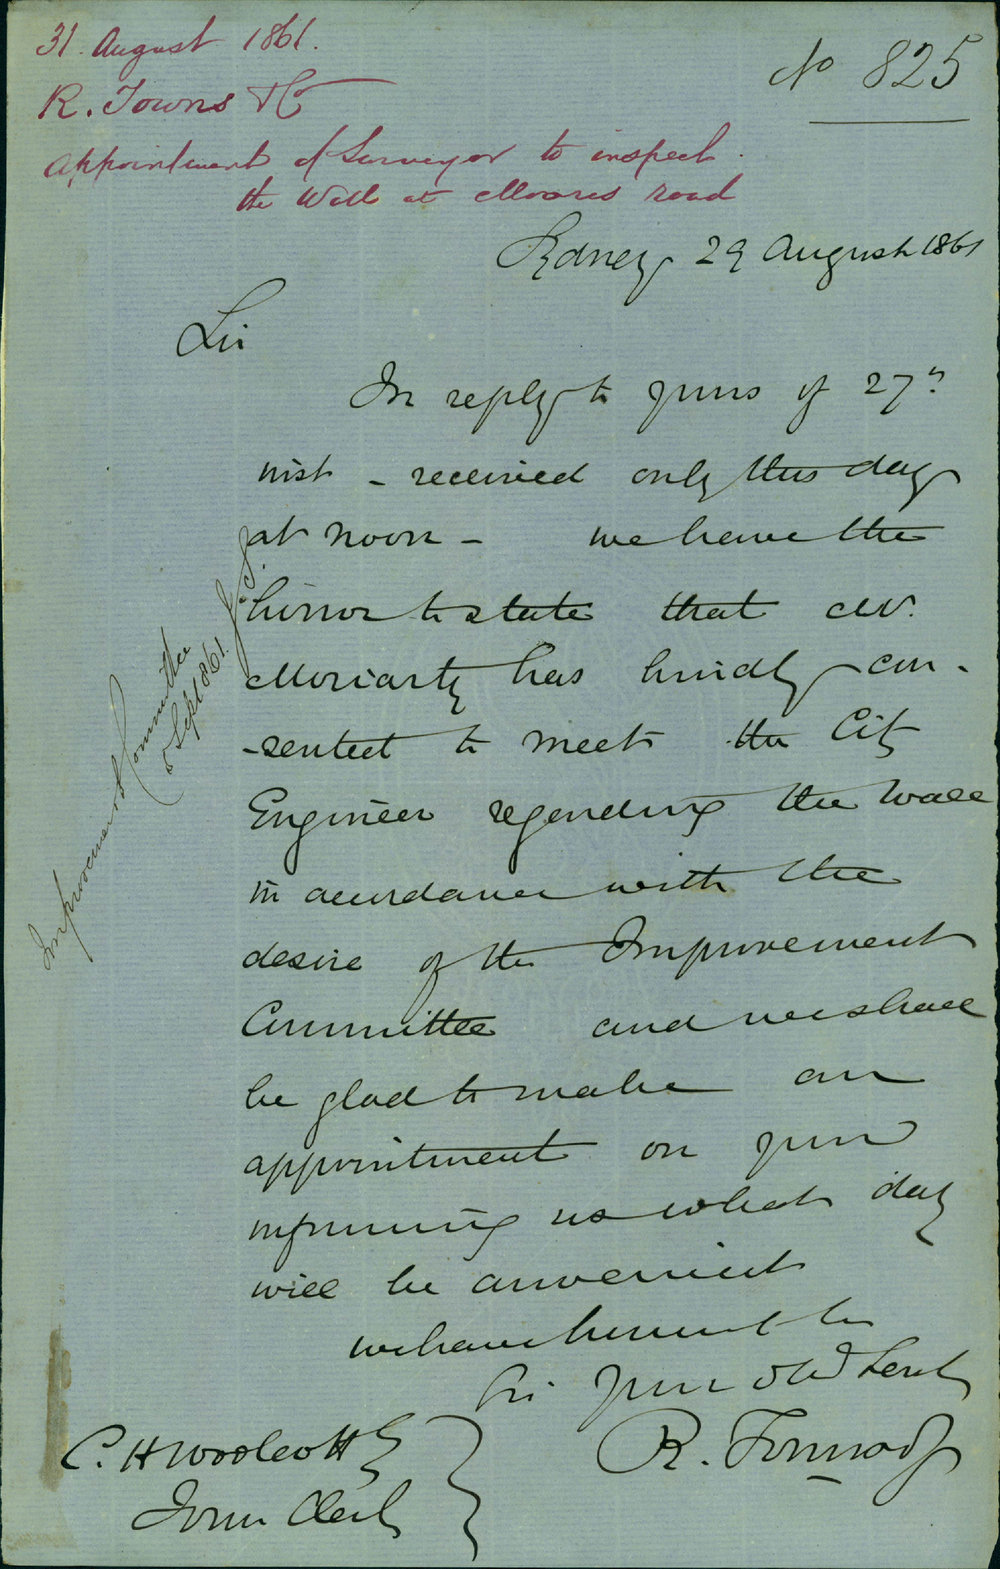 31 August 1861.
R. Towns & Co
Appointment of Surveyor to inspect
the Wall at Moores road
No 825
Sydney 29 August 1861
Sir
In reply to yours of 27th
inst - received only this day
at noon - we have the
honor to state that Mr.
Moriarty has kindly con-
-sented to meet the City
Engineer regarding the Wall
in accordance with the
desire of the Improvement
Committee and we shall
be glad to make an
appointment on your
informing us what day
will be convenient
we have honour to be
Sir your obd Servts
R. Towns & Co
C. H Woolcott
Town Clerk
Improvement Committee
5 Sept 1861.